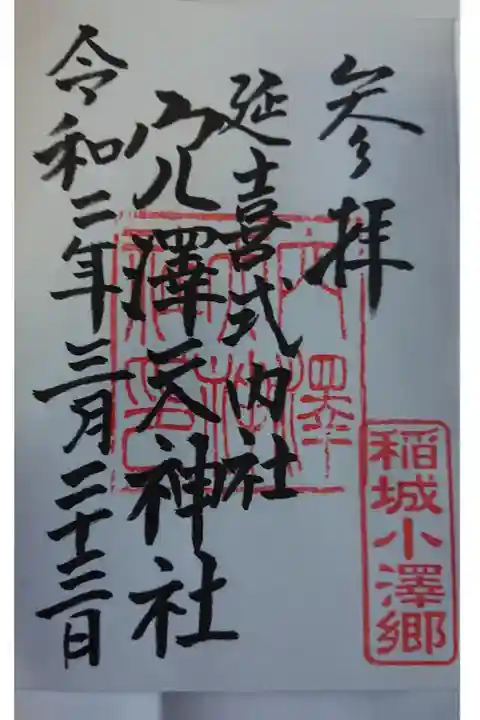 参拝
延喜式内社
穴澤天神社
令和二年三月二十二日
稲城小澤郷